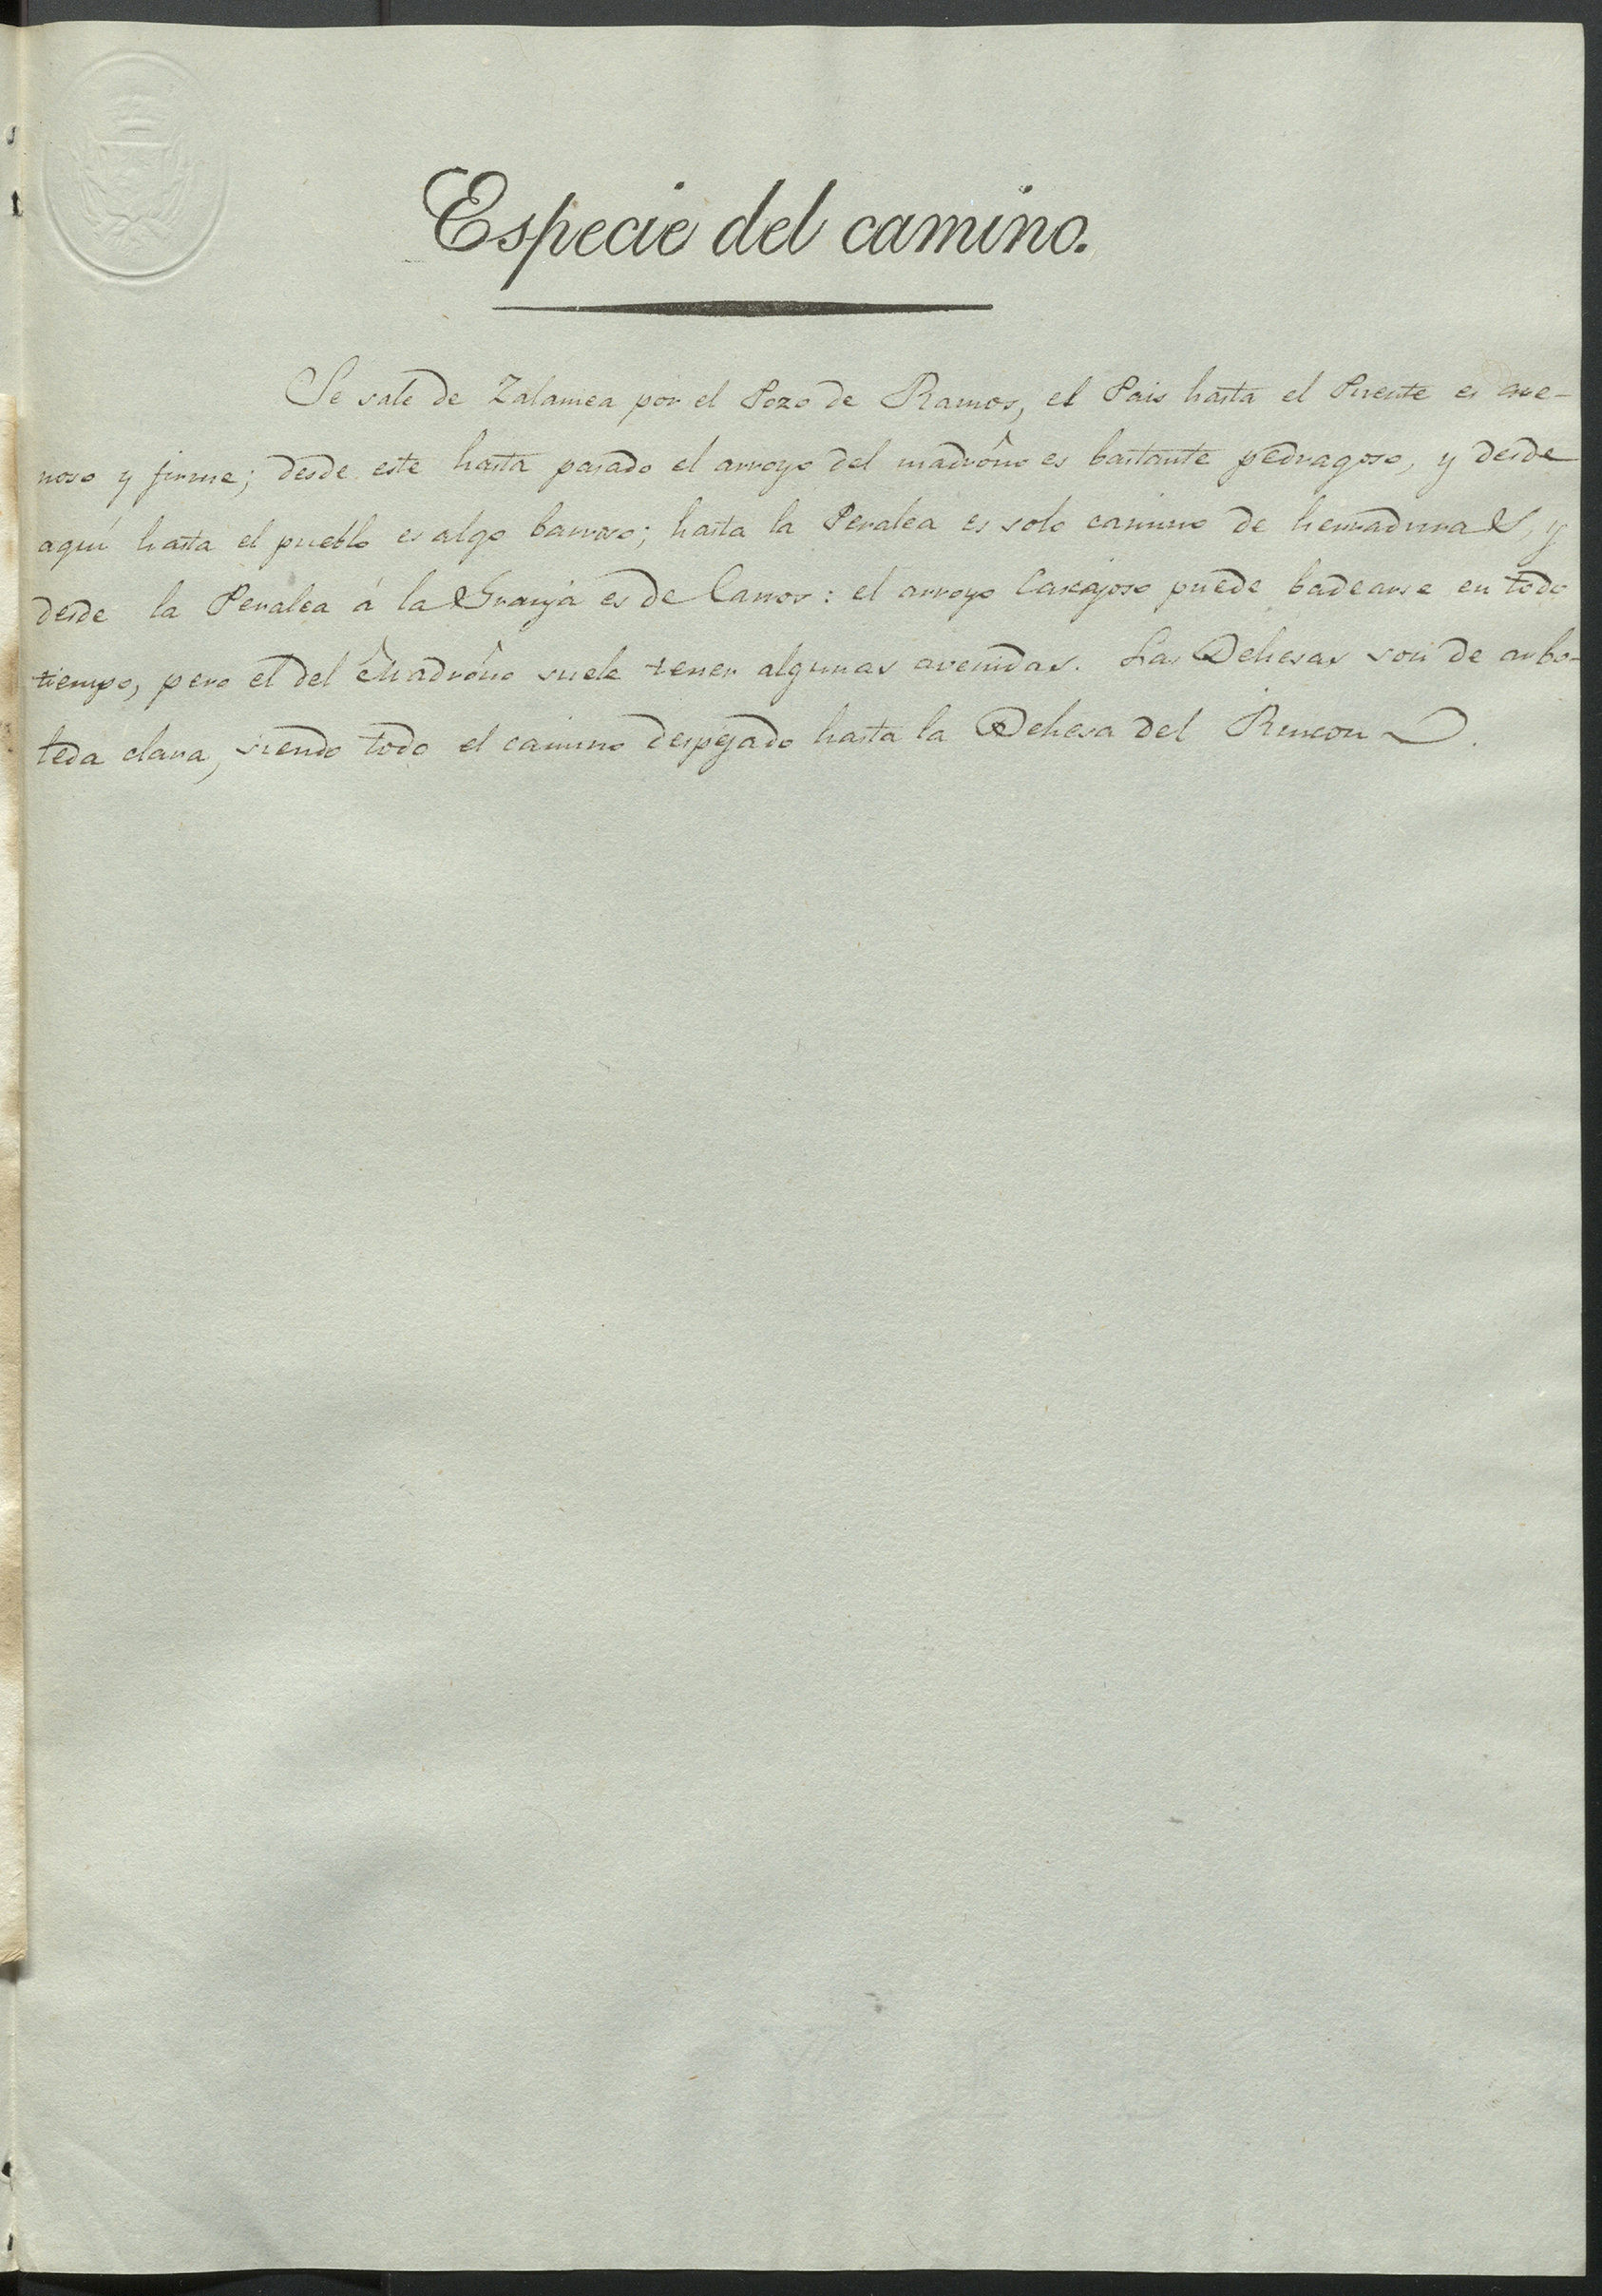 Especie del camino.
Se sale de Zalamea por el Pozo de Ramos, el Pais hasta el Puente es are-
noso y firme; desde este hasta pasado el arroyo del madroño es bastante pedragoso, y desde
aquí hasta el pueblo es algo barroso; hasta la Peralea es solo camino de herradura, y
desde la Peralea á la Granja es de Carros: el arroyo Cascajoso puede badearse en todo
tiempo, pero el del Madroño suele tener algunas avenidas. Las Dehesas son de arbo-
leda clara, siendo todo el camino despejado hasta la Dehesa del Rincon.